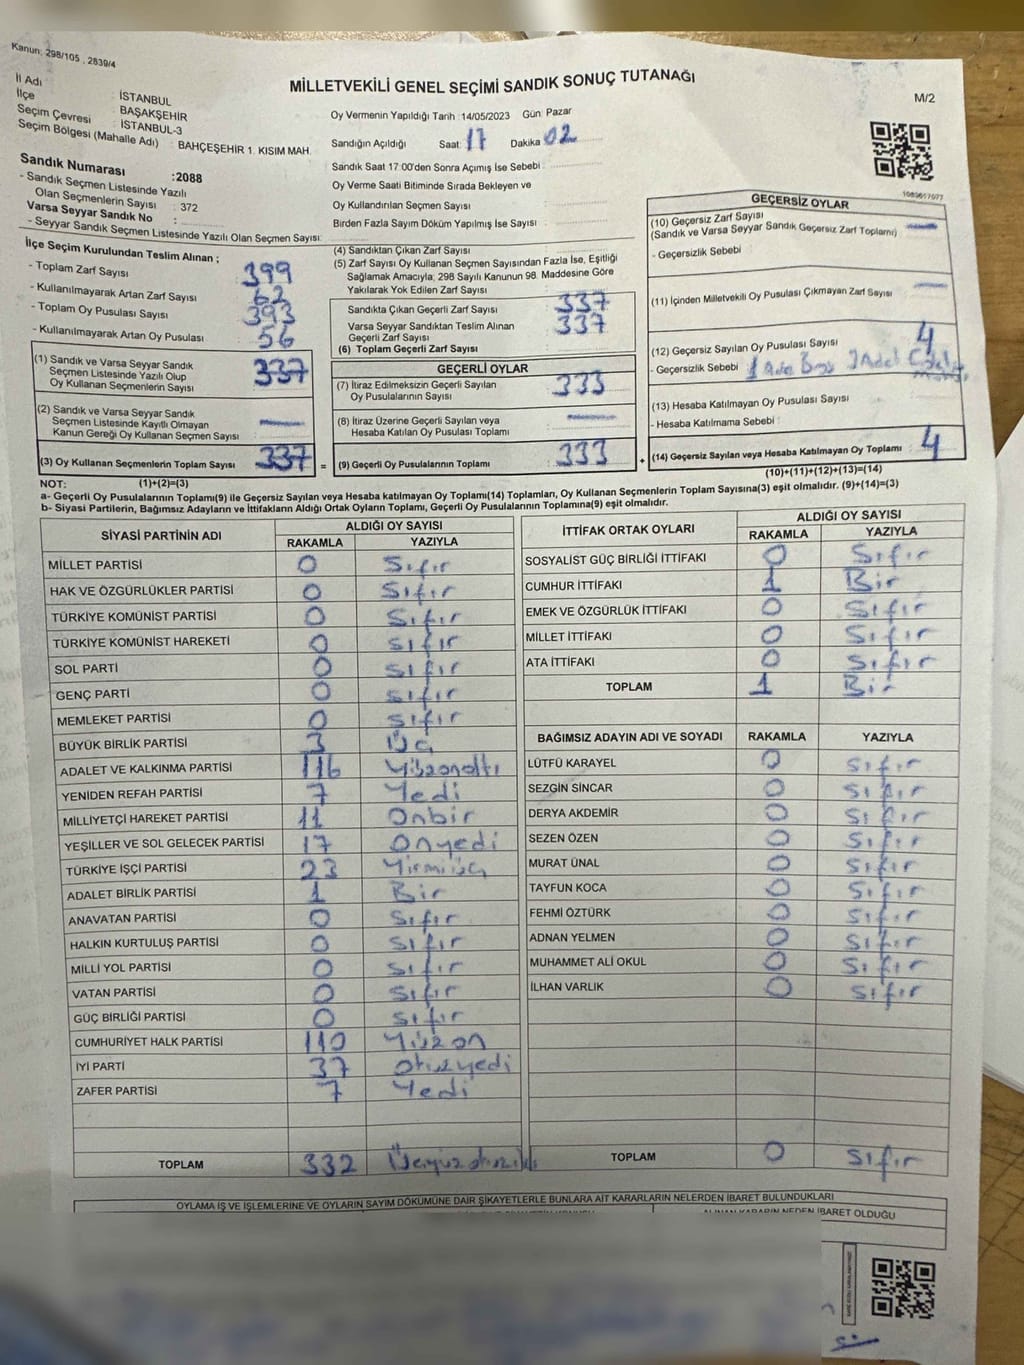 Kanun: 298/105 , 2839/4
MİLLETVEKİLİ GENEL SEÇİMİ SANDIK SONUÇ TUTANAĞI
M/2
İl Adı : İSTANBUL
İlçe : BAŞAKŞEHİR
Seçim Çevresi : İSTANBUL-3
Seçim Bölgesi (Mahalle Adı) : BAHÇEŞEHİR 1. KISIM MAH.
Sandık Numarası :2088
- Sandık Seçmen Listesinde Yazılı
Olan Seçmenlerin Sayısı : 372
Varsa Seyyar Sandık No :
- Seyyar Sandık Seçmen Listesinde Yazılı Olan Seçmen Sayısı:
Oy Vermenin Yapıldığı Tarih :14/05/2023 Gün: Pazar
Sandığın Açıldığı Saat: 17 Dakika: 02
Sandık Saat 17:00'den Sonra Açımış İse Sebebi :
Oy Verme Saati Bitiminde Sırada Bekleyen ve
Oy Kullandırılan Seçmen Sayısı :
Birden Fazla Sayım Döküm Yapılmış İse Sayısı :
1089617077
İlçe Seçim Kurulundan Teslim Alınan ;
- Toplam Zarf Sayısı : 399
- Kullanılmayarak Artan Zarf Sayısı : 62
- Toplam Oy Pusulası Sayısı : 393
- Kullanılmayarak Artan Oy Pusulası : 56
(1) Sandık ve Varsa Seyyar Sandık
Seçmen Listesinde Yazılı Olup
Oy Kullanan Seçmenlerin Sayısı : 337
(2) Sandık ve Varsa Seyyar Sandık
Seçmen Listesinde Kayıtlı Olmayan
Kanun Gereği Oy Kullanan Seçmen Sayısı :
(3) Oy Kullanan Seçmenlerin Toplam Sayısı : 337 =
(4) Sandıktan Çıkan Zarf Sayısı :
(5) Zarf Sayısı Oy Kullanan Seçmen Sayısından Fazla İse, Eşitliği
Sağlamak Amacıyla; 298 Sayılı Kanunun 98. Maddesine Göre
Yakılarak Yok Edilen Zarf Sayısı :
Sandıkta Çıkan Geçerli Zarf Sayısı : 337
Varsa Seyyar Sandıktan Teslim Alınan : 337
Geçerli Zarf Sayısı
(6) Toplam Geçerli Zarf Sayısı :
GEÇERLİ OYLAR
(7) İtiraz Edilmeksizin Geçerli Sayılan
Oy Pusulalarının Sayısı : 333
(8) İtiraz Üzerine Geçerli Sayılan veya
Hesaba Katılan Oy Pusulası Toplamı :
(9) Geçerli Oy Pusulalarının Toplamı : 333 +
GEÇERSİZ OYLAR
(10) Geçersiz Zarf Sayısı
(Sandık ve Varsa Seyyar Sandık Geçersiz Zarf Toplamı)
- Geçersizlik Sebebi :
(11) İçinden Milletvekili Oy Pusulası Çıkmayan Zarf Sayısı :
(12) Geçersiz Sayılan Oy Pusulası Sayısı : 4
- Geçersizlik Sebebi :
(13) Hesaba Katılmayan Oy Pusulası Sayısı :
- Hesaba Katılmama Sebebi :
(14) Geçersiz Sayılan veya Hesaba Katılmayan Oy Toplamı : 4
NOT: (1)+(2)=(3) (10)+(11)+(12)+(13)=(14)
a- Geçerli Oy Pusulalarının Toplamı(9) ile Geçersiz Sayılan veya Hesaba katılmayan Oy Toplamı(14) Toplamları, Oy Kullanan Seçmenlerin Toplam Sayısına(3) eşit olmalıdır. (9)+(14)=(3)
b- Siyasi Partilerin, Bağımsız Adayların ve İttifakların Aldığı Ortak Oyların Toplamı, Geçerli Oy Pusulalarının Toplamına(9) eşit olmalıdır.
SİYASİ PARTİNİN ADI ALDIĞI OY SAYISI
RAKAMLA YAZIYLA
MİLLET PARTİSİ 0 Sıfır
HAK VE ÖZGÜRLÜKLER PARTİSİ 0 Sıfır
TÜRKİYE KOMÜNİST PARTİSİ 0 Sıfır
TÜRKİYE KOMÜNİST HAREKETİ 0 Sıfır
SOL PARTİ 0 Sıfır
GENÇ PARTİ 0 Sıfır
MEMLEKET PARTİSİ 0 Sıfır
BÜYÜK BİRLİK PARTİSİ 3 Üç
ADALET VE KALKINMA PARTİSİ 116 Yüzonaltı
YENİDEN REFAH PARTİSİ 7 Yedi
MİLLİYETÇİ HAREKET PARTİSİ 11 Onbir
YEŞİLLER VE SOL GELECEK PARTİSİ 17 Onyedi
TÜRKİYE İŞÇİ PARTİSİ 23 Yirmiüç
ADALET BİRLİK PARTİSİ 1 Bir
ANAVATAN PARTİSİ 0 Sıfır
HALKIN KURTULUŞ PARTİSİ 0 Sıfır
MİLLİ YOL PARTİSİ 0 Sıfır
VATAN PARTİSİ 0 Sıfır
GÜÇ BİRLİĞİ PARTİSİ 0 Sıfır
CUMHURİYET HALK PARTİSİ 110 Yüzon
İYİ PARTİ 37 Otuzyedi
ZAFER PARTİSİ 7 Yedi
TOPLAM 332 Üçyüzotuziki
İTTİFAK ORTAK OYLARI ALDIĞI OY SAYISI
RAKAMLA YAZIYLA
SOSYALİST GÜÇ BİRLİĞİ İTTİFAKI 0 Sıfır
CUMHUR İTTİFAKI 1 Bir
EMEK VE ÖZGÜRLÜK İTTİFAKI 0 Sıfır
MİLLET İTTİFAKI 0 Sıfır
ATA İTTİFAKI 0 Sıfır
TOPLAM 1 Bir
BAĞIMSIZ ADAYIN ADI VE SOYADI RAKAMLA YAZIYLA
LÜTFÜ KARAYEL 0 Sıfır
SEZGİN SİNCAR 0 Sıfır
DERYA AKDEMİR 0 Sıfır
SEZEN ÖZEN 0 Sıfır
MURAT ÜNAL 0 Sıfır
TAYFUN KOCA 0 Sıfır
FEHMİ ÖZTÜRK 0 Sıfır
ADNAN YELMEN 0 Sıfır
MUHAMMET ALİ OKUL 0 Sıfır
İLHAN VARLIK 0 Sıfır
TOPLAM 0 Sıfır
OYLAMA İŞ VE İŞLEMLERİNE VE OYLARIN SAYIM DÖKÜMÜNE DAİR ŞİKAYETLERLE BUNLARA AİT KARARLARIN NELERDEN İBARET BULUNDUKLARI
ALINAN KARARIN NEDEN İBARET OLDUĞU